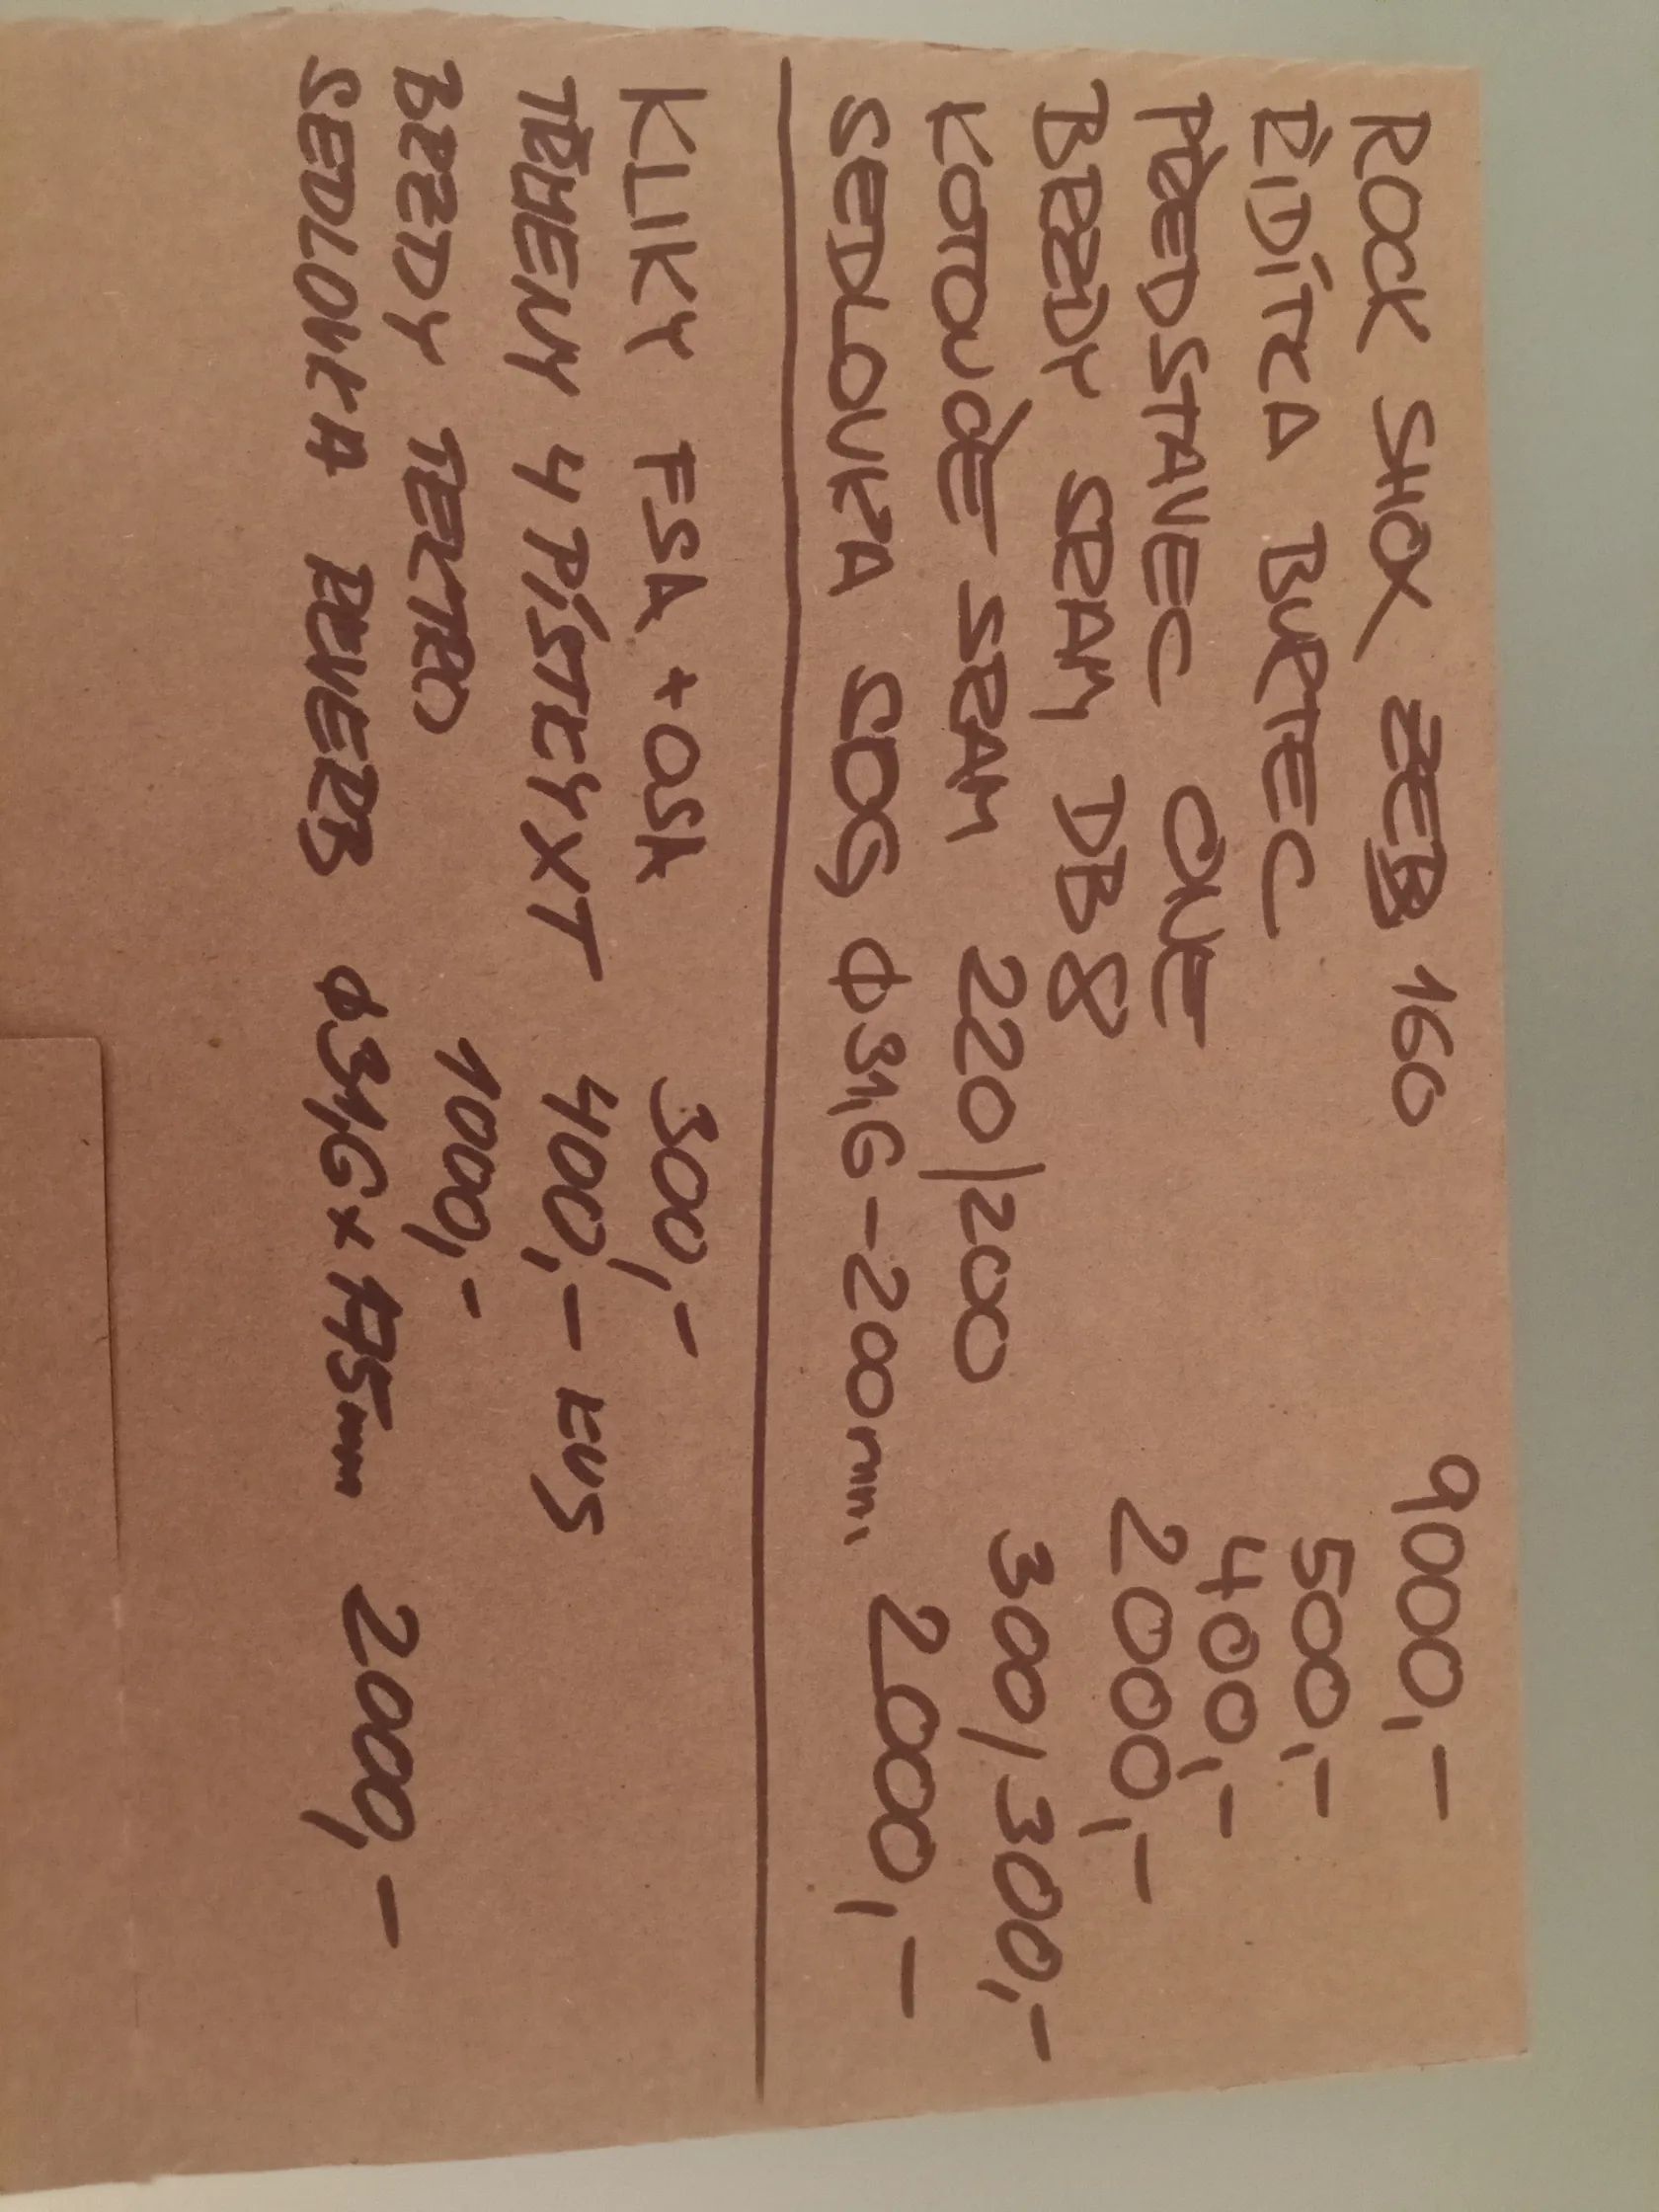 ROCK SHOX ZEB 160 9000,-
ŘIDÍTKA BURTEC 500,-
PŘEDSTAVEC ONE 400,-
BRZDY SRAM DB8 2000,-
KOTOUČE SRAM 220/200 300/300,-
SEDLOVKA SDG ϕ31,6-200mm 2000,-
KLIKY FSA + OSA 300,-
TŘMENY 4 PÍSTKY XT 400,- KUS
BRZDY TECTRO 1000,-
SEDLOVKA REVERB ϕ31,6 x 175mm 2000,-